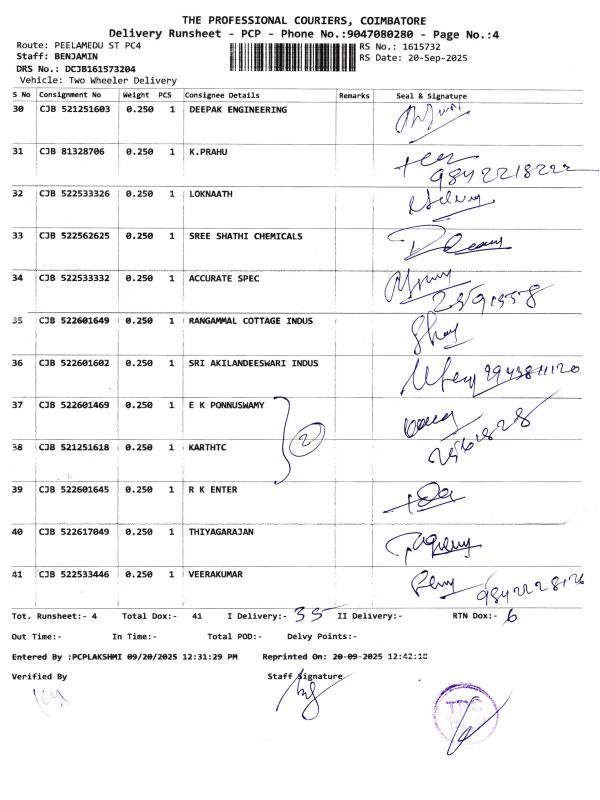 THE PROFESSIONAL COURIERS, COIMBATORE
Delivery Runsheet - PCP - Phone No.:9047080280 - Page No.:4
Route: PEELAMEDU ST PC4 RS No.: 1615732
Staff: BENJAMIN RS Date: 20-Sep-2025
DRS No.: DCJB161573204
Vehicle: Two Wheeler Delivery
S No Consignment No Weight PCS Consignee Details Remarks Seal & Signature
30 CJB 521251603 0.250 1 DEEPAK ENGINEERING
31 CJB 81328706 0.250 1 K.PRAHU
9842218222
32 CJB 522533326 0.250 1 LOKNAATH
33 CJB 522562625 0.250 1 SREE SHATHI CHEMICALS
34 CJB 522533332 0.250 1 ACCURATE SPEC
35 CJB 522601649 0.250 1 RANGAMMAL COTTAGE INDUS
36 CJB 522601602 0.250 1 SRI AKILANDEESWARI INDUS
37 CJB 522601469 0.250 1 E K PONNUSWAMY
2
38 CJB 521251618 0.250 1 KARTHTC
39 CJB 522601645 0.250 1 R K ENTER
40 CJB 522617049 0.250 1 THIYAGARAJAN
41 CJB 522533446 0.250 1 VEERAKUMAR
Tot. Runsheet:- 4 Total Dox:- 41 I Delivery:- 35 II Delivery:- RTN Dox:- 6
Out Time:- In Time:- Total POD:- Delvy Points:-
Entered By :PCPLAKSHMI 09/20/2025 12:31:29 PM Reprinted On: 20-09-2025 12:42:18
Verified By Staff Signature